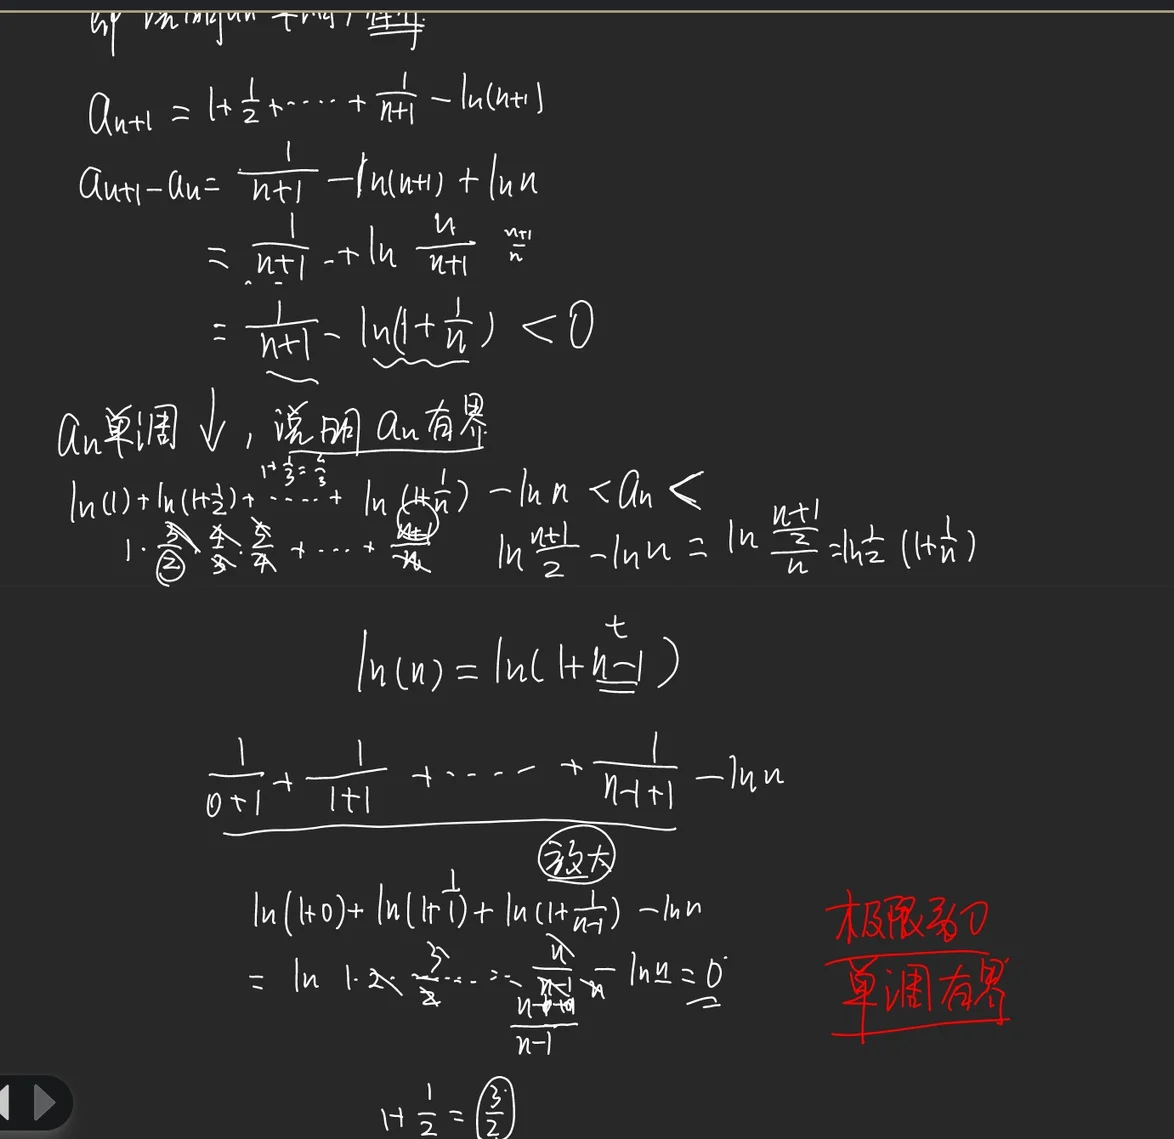 a_{n+1} = 1 + 1/2 + ····· + 1/(n+1) - ln(n+1)
a_{n+1} - a_n = 1/(n+1) - ln(n+1) + ln n
= 1/(n+1) + ln n/(n+1) (n+1)/n
= 1/(n+1) - ln(1 + 1/n) < 0
a_n 单调 ↓, 说明 a_n 有界
ln(1) + ln(1+1/2) + ····· + ln(1+1/n) - ln n < a_n <
1 · 3/2 · 4/3 · 5/4 + ··· + (n+1)/n ln (n+1)/2 - ln n = ln ((n+1)/2)/n = ln 1/2 (1+1/n)
t
ln(n) = ln(1+n-1)
1/(0+1) + 1/(1+1) + ····· + 1/(n-1+1) - ln n
放大
ln(1+0) + ln(1+1/1) + ln(1+1/(n-1)) - ln n
= ln 1·2· 3/2 ····· n/(n-1) - ln n = 0
极限
单调有界
1+ 1/2 = 3/2